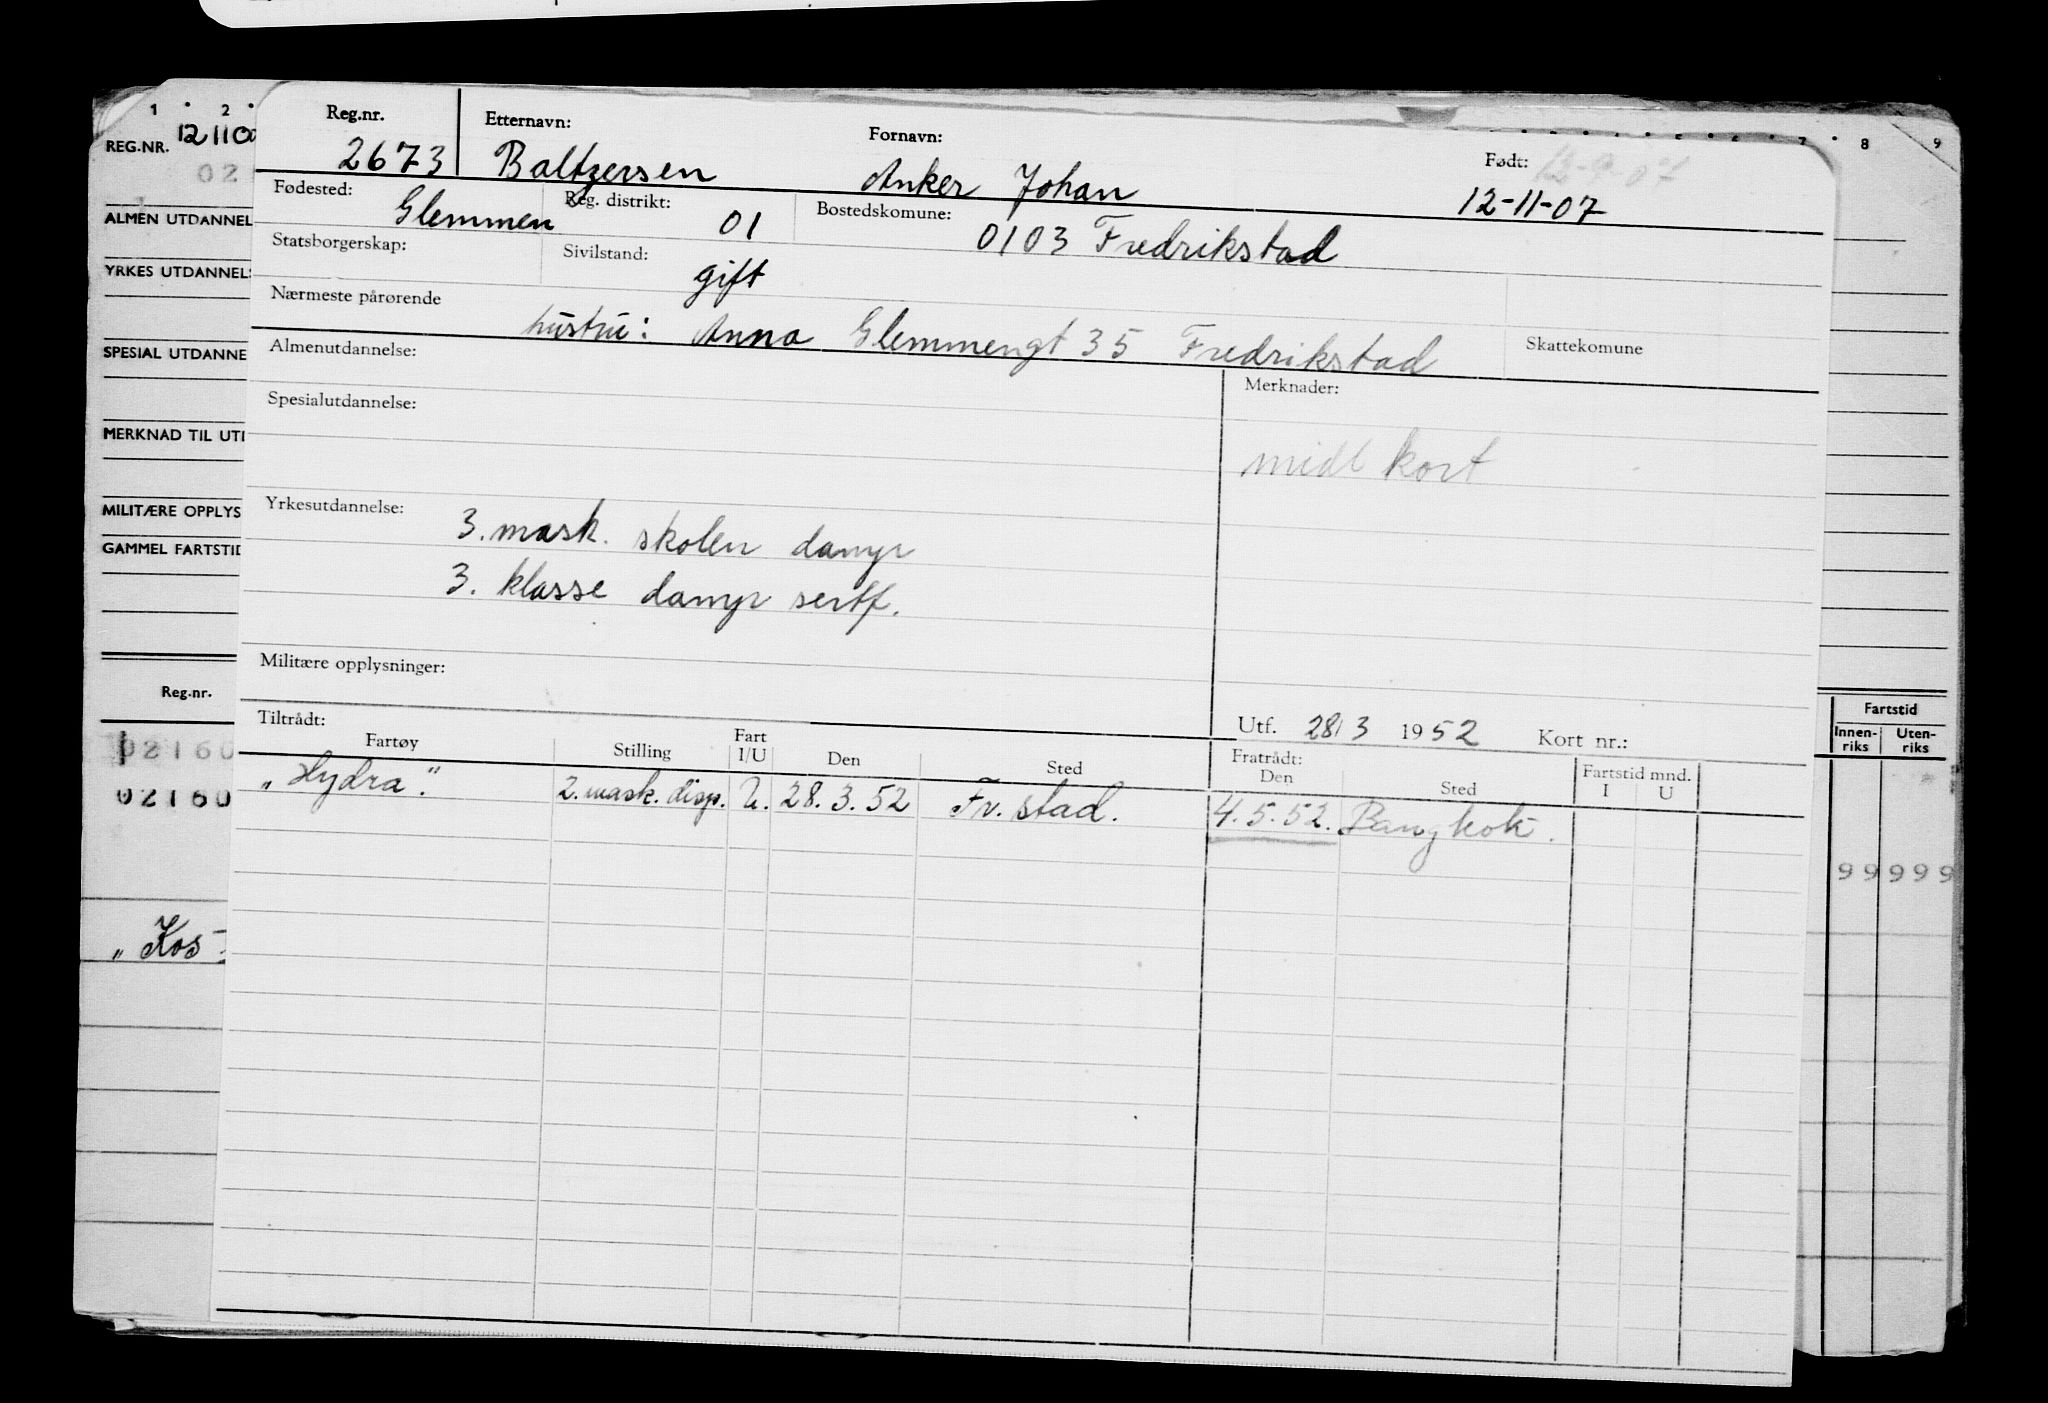 1 2 7 8 9
REG.NR. 12110
02
ALMEN UTDANNEL
YRKES UTDANNELS
SPESIAL UTDANNE
MERKNAD TIL UT
MILITÆRE OPPLYS
GAMMEL FARTSTID
Reg.nr.
02160
02160
„Kos
Fartstid
Innen-riks Uten-riks
99999
Reg.nr. Etternavn: Fornavn: Født: 12-9-07
2673 Baltzersen Anker Johan 12-11-07
Fødested: Reg. distrikt: Bostedskomune:
Glemmen 01 0103 Fredrikstad
Statsborgerskap: Sivilstand:
gift
Nærmeste pårørende
hustru: Anna Glemmengt 35 Fredrikstad Skattekomune
Almenutdannelse: Merknader:
Spesialutdannelse:
midl kort
Yrkesutdannelse: 3. mask. skolen damp
3. klasse damp sertf.
Militære opplysninger:
Tiltrådt: Utf. 28/3 1952 Kort nr.:
Fartøy Stilling Fart I/U Den Sted Fratrådt: Den Sted Fartstid mnd. I U
„Hydra." 2. mask. disp. U. 28.3.52 Fr. stad. 4.5.52. Bangkok.